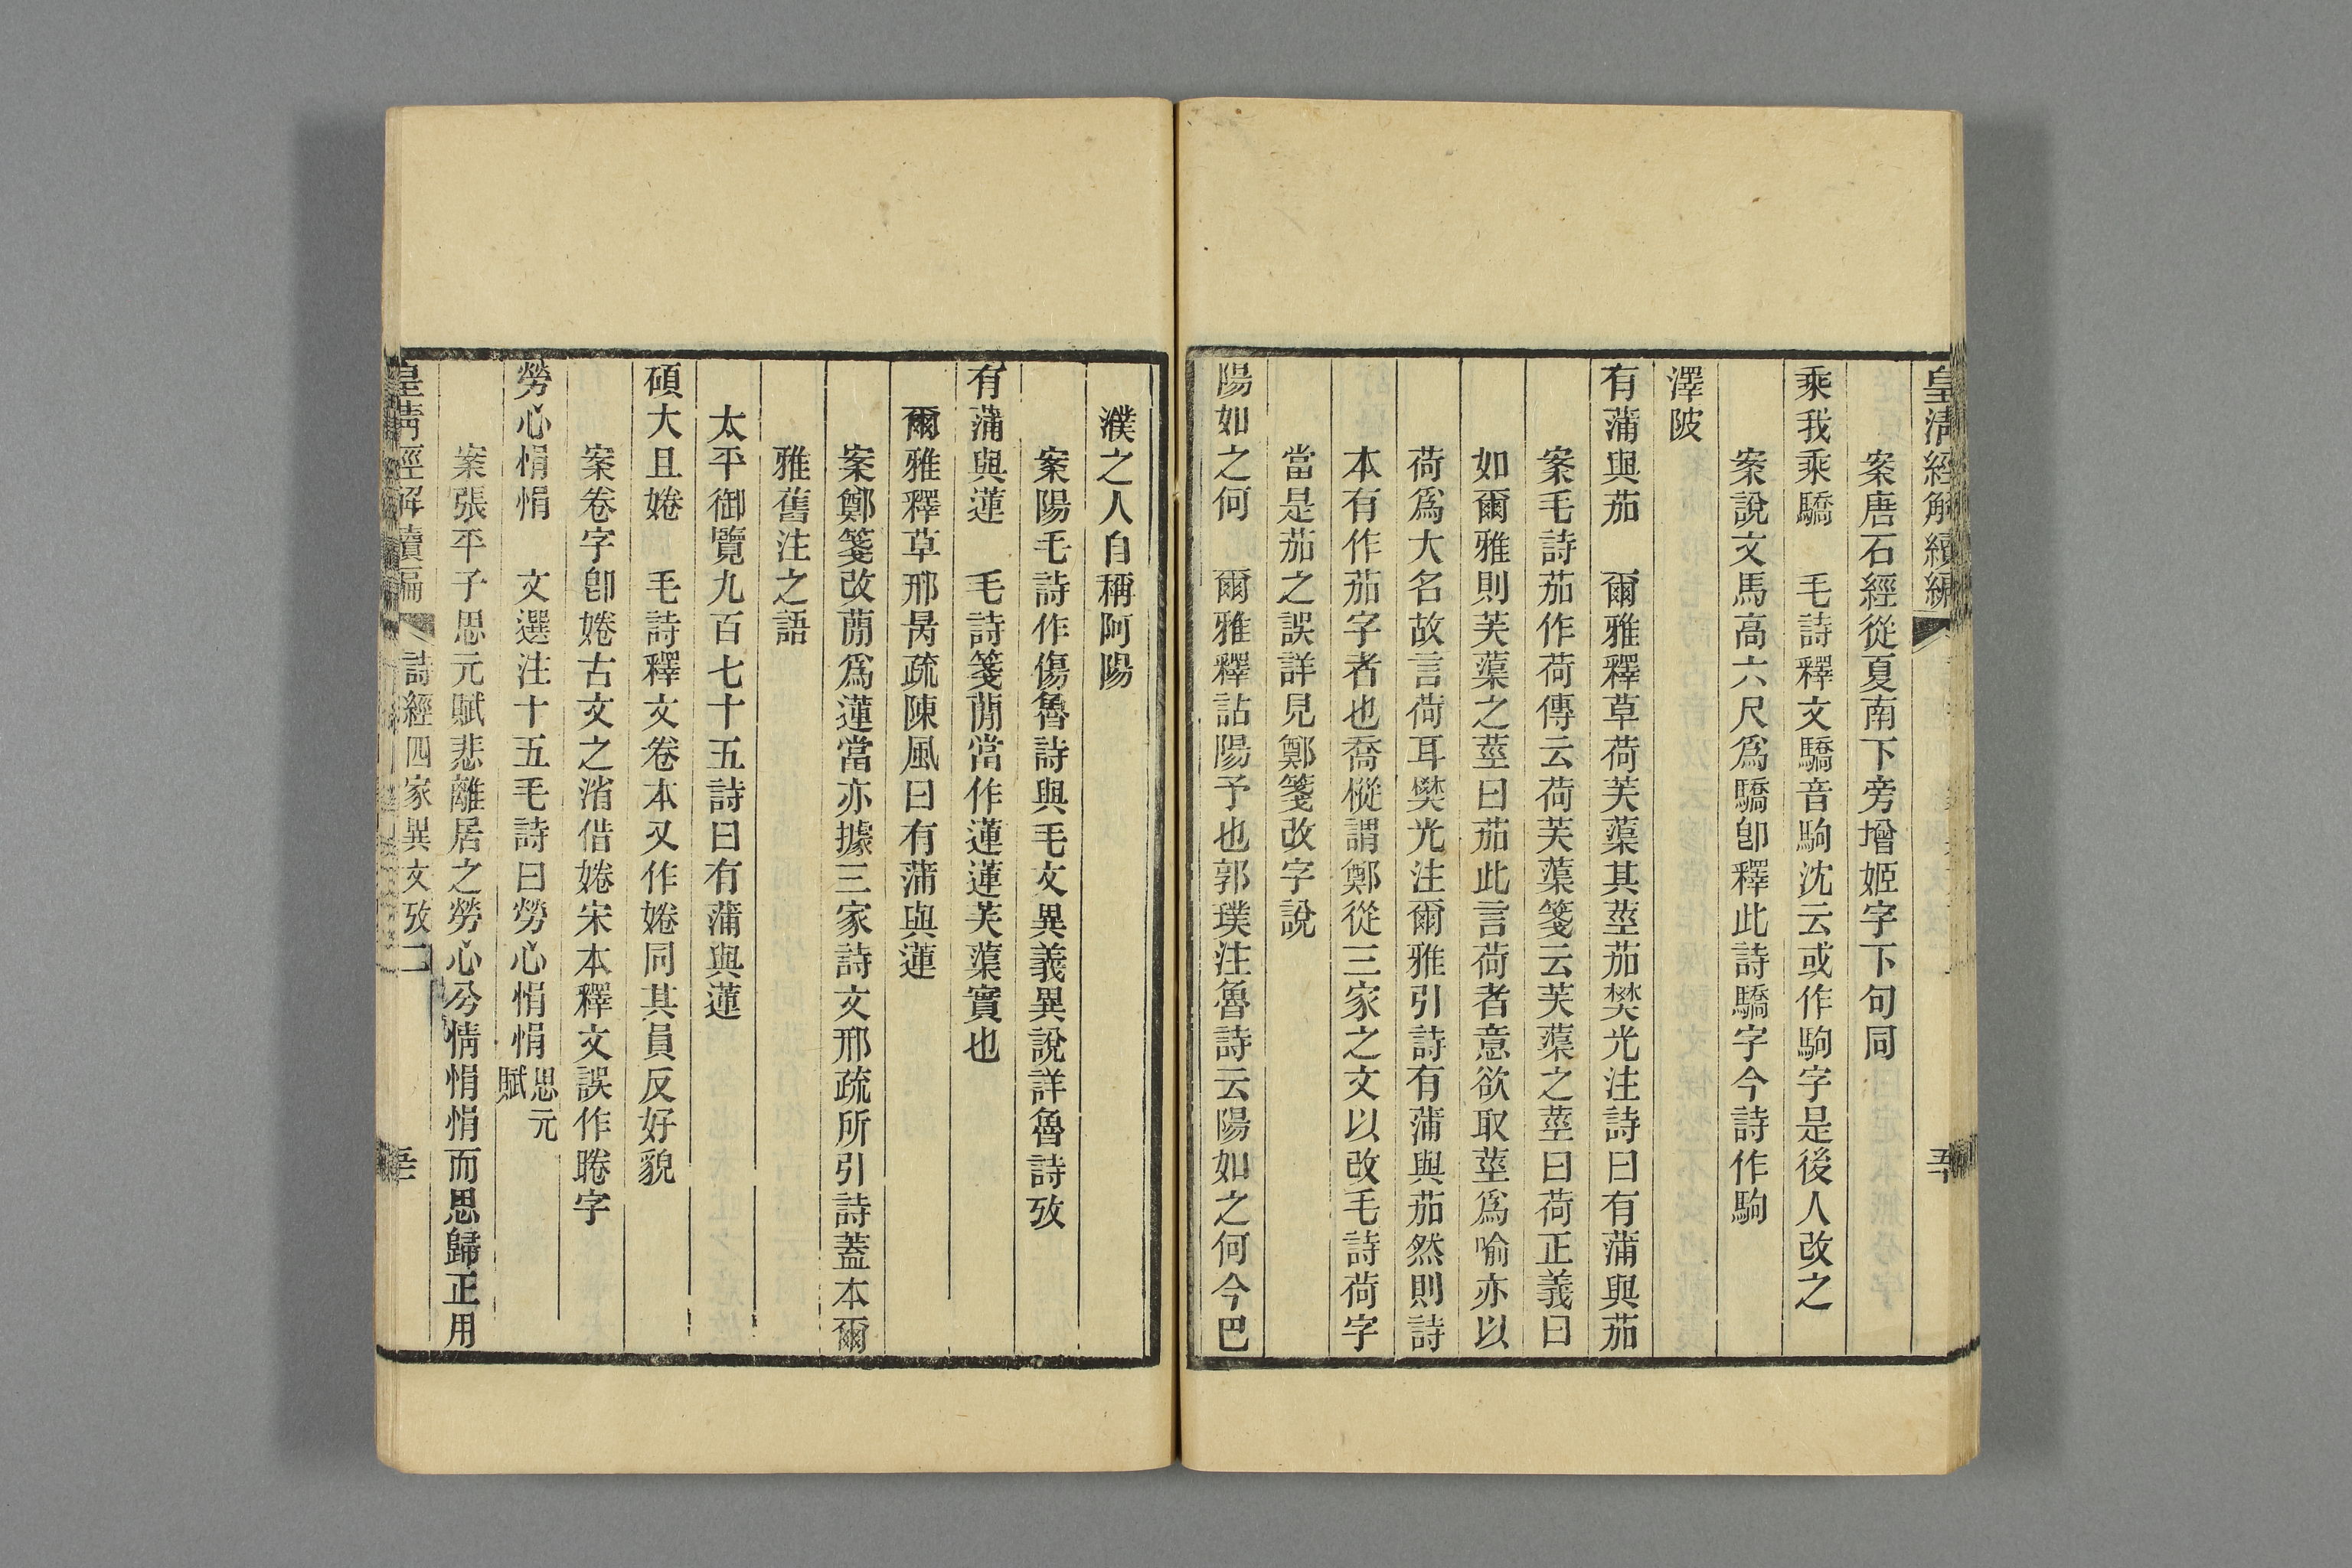 皇清經解續編
案唐石經從夏南下旁增姬字下句同
乘我乘驕　毛詩釋文驕音駒沈云或作駒字是後人改之
案說文馬高六尺爲驕卽釋此詩驕字今詩作駒
澤陂
有蒲與茄　爾雅釋草荷芙蕖其莖茄樊光注詩曰有蒲與茄
案毛詩茄作荷傳云荷芙蕖箋云芙蕖之莖曰荷正義曰
如爾雅則芙蕖之莖曰茄此言荷者意欲取莖爲喻亦以
荷爲大名故言荷耳樊光注爾雅引詩有蒲與茄然則詩
本有作茄字者也喬樅謂鄭從三家之文以改毛詩荷字
當是茄之誤詳見鄭箋改字說
陽如之何　爾雅釋詁陽予也郭璞注魯詩云陽如之何今巴
濮之人自稱阿陽
案陽毛詩作傷魯詩與毛文異義異說詳魯詩攷
有蒲與蓮　毛詩箋蕑當作蓮蓮芙蕖實也
爾雅釋草邢昺疏陳風曰有蒲與蓮
案鄭箋改蕑爲蓮當亦據三家詩文邢疏所引詩蓋本爾
雅舊注之語
太平御覽九百七十五詩曰有蒲與蓮
碩大且婘　毛詩釋文卷本又作婘同其員反好貌
案卷字卽婘古文之渻借婘宋本釋文誤作睠字
勞心悁悁　文選注十五毛詩曰勞心悁悁思元賦
案張平子思元賦悲離居之勞心兮情悁悁而思歸正用
皇清經解續編　詩經四家異文攷二